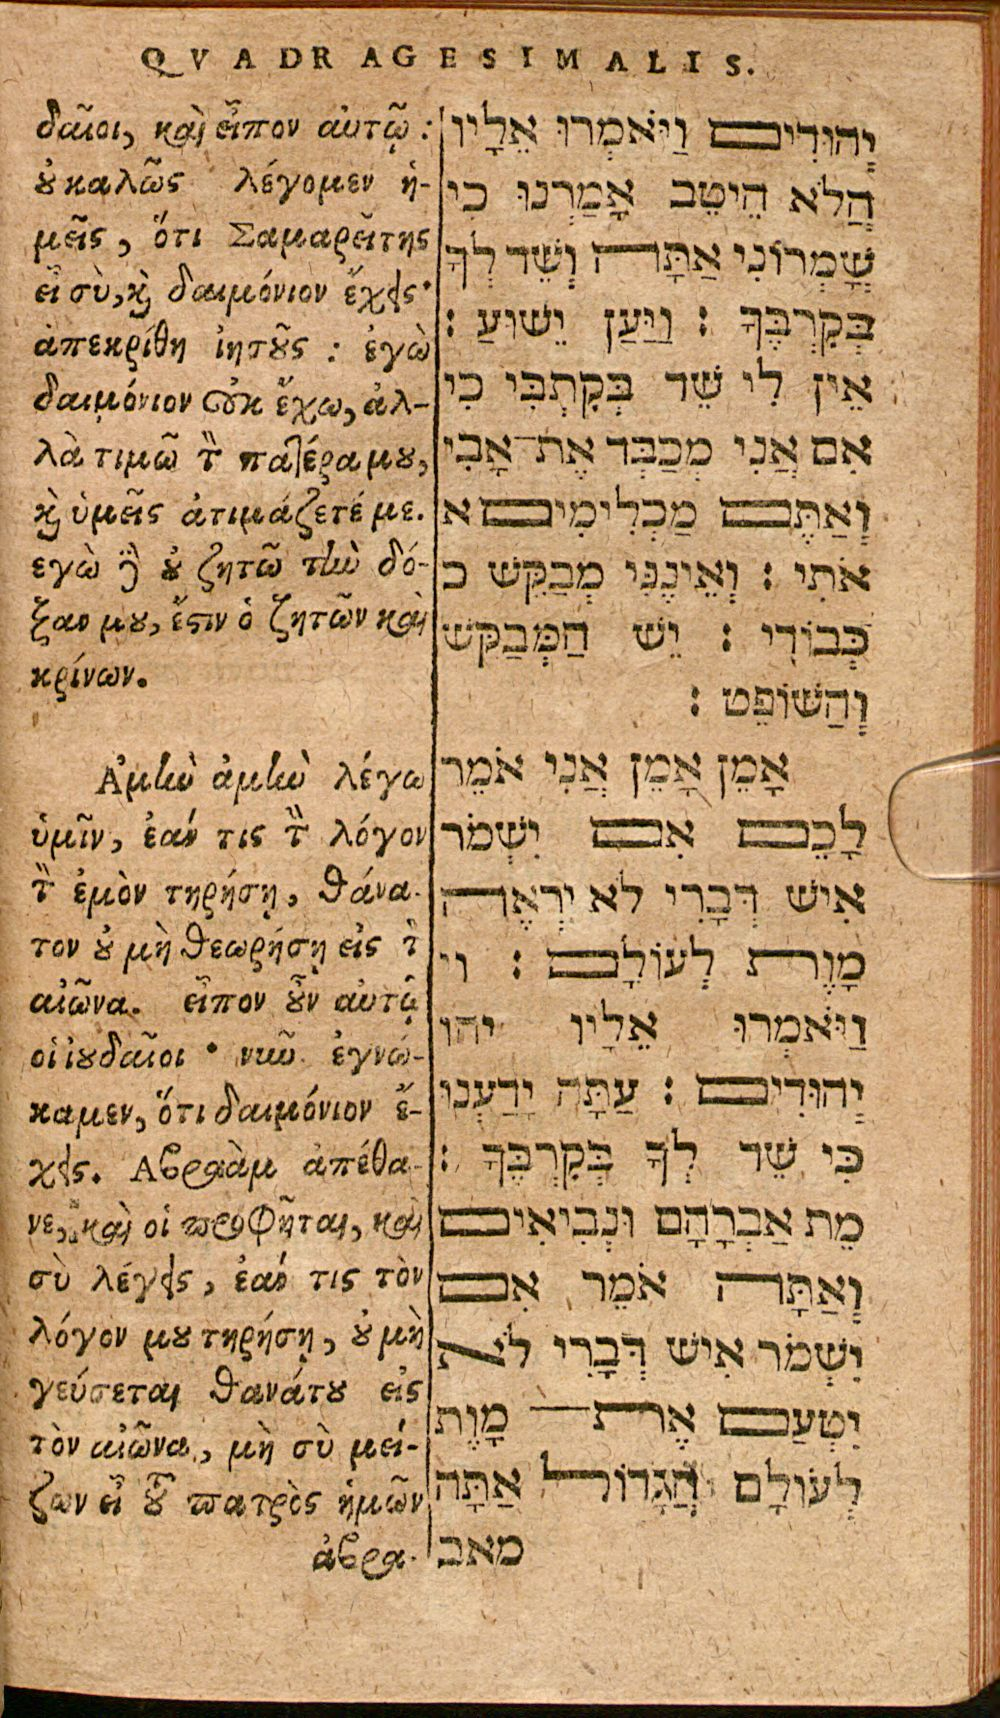 QVADRAGESIMALIS.
δαῖοι, καὶ εἶπον αὐτῷ:
οὐ καλῶς λέγομεν ἡ-
μεῖς, ὅτι Σαμαρείτης
εἶ σὺ, καὶ δαιμόνιον ἔχεις·
ἀπεκρίθη ἰησοῦς : ἐγὼ
δαιμόνιον οὐκ ἔχω, ἀλ-
λὰ τιμῶ τὸν πατέρα μου,
καὶ ὑμεῖς ἀτιμάζετέ με.
εγὼ δὲ οὐ ζητῶ τὴν δό-
ξαν μου, ἔστιν ὁ ζητῶν καὶ
κρίνων.
Αμὴν ἀμὴν λέγω
ὑμῖν, ἐάν τις τὸν λόγον
τὸν ἐμὸν τηρήσῃ, θάνα-
τον οὐ μὴ θεωρήσῃ εἰς τὸν
αἰῶνα. εἶπον οὖν αὐτῷ
οἱ ἰουδαῖοι · νῦν ἐγνώ-
καμεν, ὅτι δαιμόνιον ἔ-
χεις. Αβραὰμ ἀπέθα-
νε, καὶ οἱ προφῆται, καὶ
σὺ λέγεις, ἐάν τις τὸν
λόγον μου τηρήσῃ, οὐ μὴ
γεύσεται θανάτου εἰς
τὸν αἰῶνα, μὴ σὺ μεί-
ζων εἶ τοῦ πατρὸς ἡμῶν
ἀβρα-
יְהוּדִים וַיֹּאמְרוּ אֵלָיו
הֲלֹא הֵיטֵב אָמַרְנוּ כִּי
שָׁמְרוֹנִי אַתָּה וְשֵׁד לְךָ
בְּקִרְבֶּךָ : וַיַּעַן יֵשׁוּעַ :
אֵין לִי שֵׁד בְּקִרְבִּי כִּי
אִם אֲנִי מְכַבֵּד אֶת־אָבִי
וְאַתֶּם מַכְלִימִים א
אֹתִי : וְאֵינֶנִּי מְבַקֵּשׁ כ
כְּבוֹדִי : יֵשׁ הַמְּבַקֵּשׁ
וְהַשׁוֹפֵט :
אָמֵן אָמֵן אֲנִי אֹמֵר
לָכֶם אִם יִשְׁמֹר
אִישׁ דְּבָרִי לֹא יִרְאֶה
מָוֶת לְעוֹלָם : וי
וַיֹּאמְרוּ אֵלָיו יהו
יְהוּדִים : עַתָּה יָדַעְנוּ
כִּי שֵׁד לְךָ בְּקִרְבֶּךָ :
מֵת אַבְרָהָם וּנְבִיאִים
וְאַתָּה אֹמֵר אִם
יִשְׁמֹר אִישׁ דְּבָרִי לֹא
יִטְעַם אֶת־ מָוֶת
לְעוֹלָם הֲגָדוֹל אַתָּה
מאב